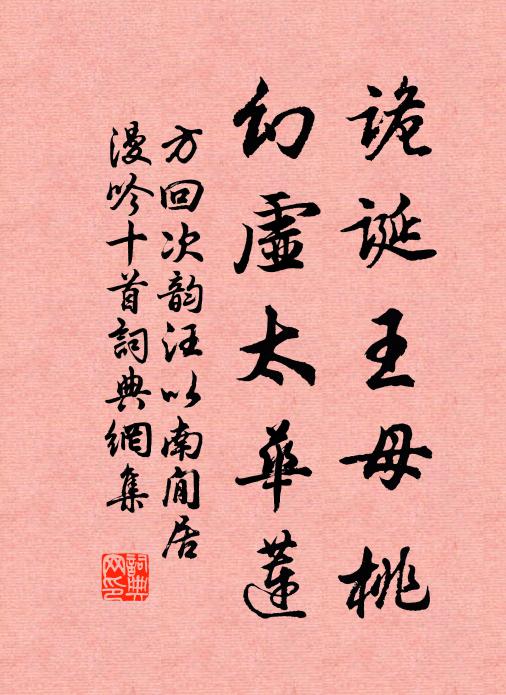 詭誕王母桃
幻虛太華蓮
方回次韵汪以南閒居
漫吟十首詞典網集
詞典
网印